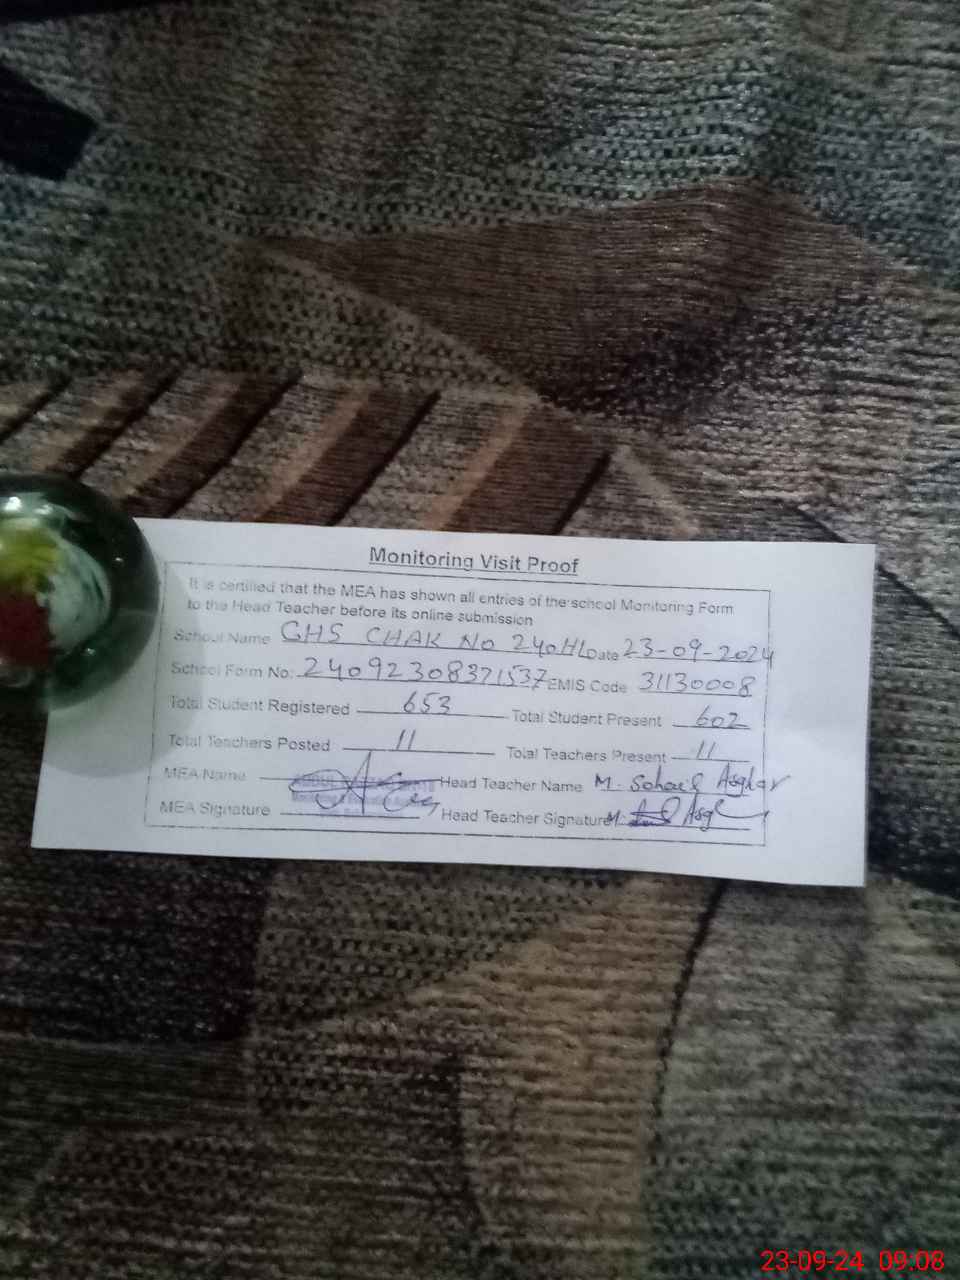 Monitoring Visit Proof
It is certified that the MEA has shown all entries of the school Monitoring Form
to the Head Teacher before its online submission
School Name GHS CHAK No 240HL Date 23-09-2024
School Form No: 24092308371537 EMIS Code 31130008
Total Student Registered 653 Total Student Present 602
Total Teachers Posted 11 Total Teachers Present 11
MEA Name ABDUL Head Teacher Name M. Sohail Asghar
MEA Signature Head Teacher Signature M. Asg
23-09-24 09:08